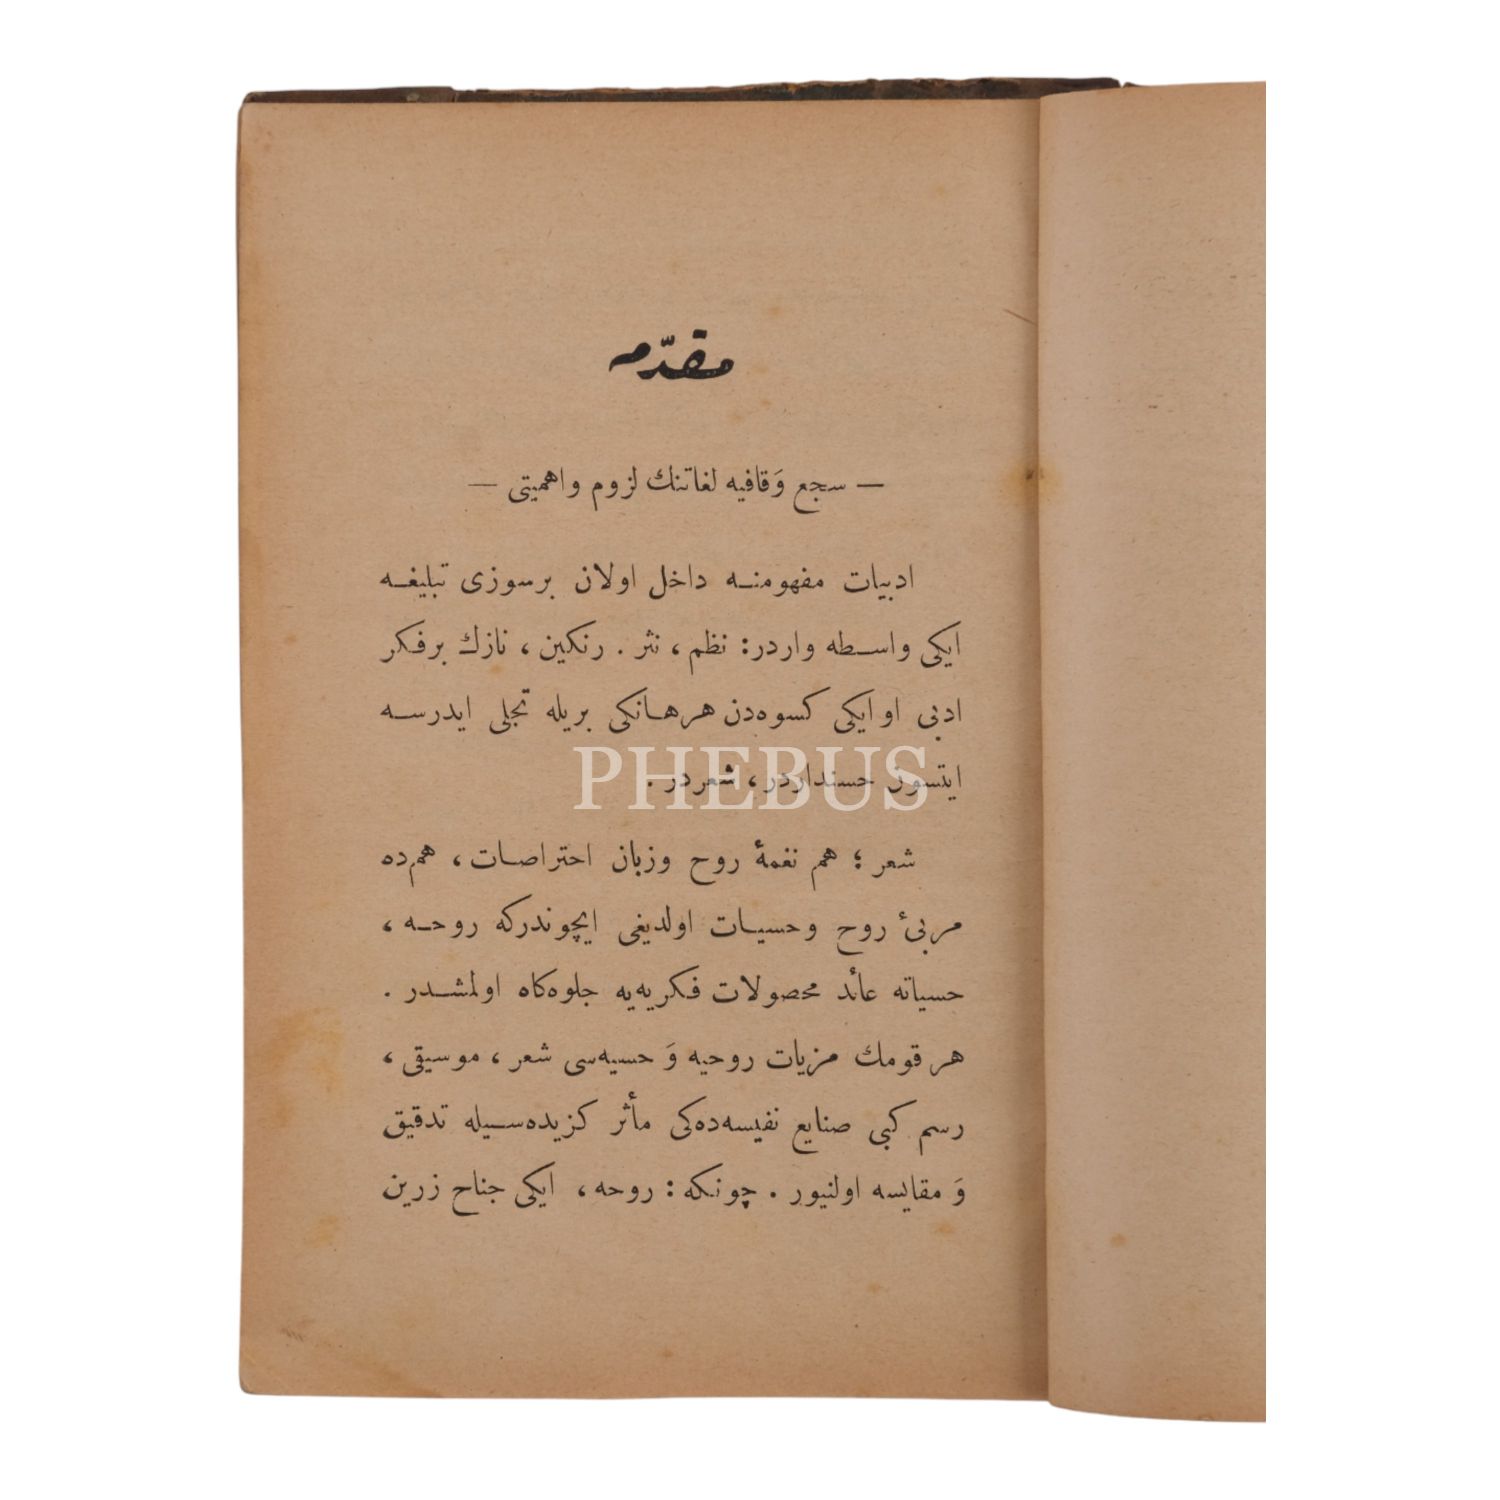 مقدّمه
— سجع وَقافيه لغاتنك لزوم واهميتى —
ادبيات مفهومنه داخل اولان برسوزى تبليغه
ايكى واسطه واردر: نظم، نثر. رنكين، نازك برفكر
ادبى او ايكى كسوه‌دن هرهانكى بريله تجلى ايدرسه
ايتسون حسنداردر، شعردر.
PHEBUS
شعر؛ هم نغمۀ روح وزبان احتراصات، هم‌ده
مربئ روح وحسيات اولديغى ايچوندركه روحه،
حسياته عائد محصولات فكريه‌يه جلوه‌كاه اولمشدر.
هرقومك مزيات روحيه وَ حسيه‌سى شعر، موسيقى،
رسم كبى صنايع نفيسه‌ده‌كى مأثر كزيده‌سيله تدقيق
وَ مقايسه اولنيور. چونكه: روحه، ايكى جناح زرين